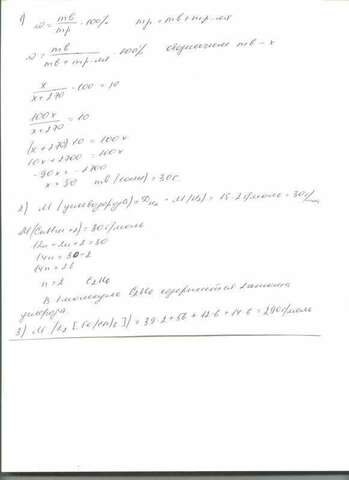 1) ω = mв/mр · 100%   mр = mв + mр-ля
ω = mв/(mв + mр-ля) · 100%   обозначим mв - x
x/(x+270) · 100 = 10
100x/(x+270) = 10
(x+270)10 = 100x
10x + 2700 = 100x
-90x = -2700
x = 30   mв (соли) = 30г.
2) M (углеводорода) = DH2 · M(H2) = 15·2г/моль = 30г/моль
M(CnH2n+2) = 30г/моль
12n + 2n + 2 = 30
14n = 30-2
14n = 28
n = 2   C2H6
В 1 молекуле C2H6 содержится 2 атома
углерода.
3) M (K4[Fe(CN)6]) = 39·2 + 56 + 12·6 + 14·6 = 290г/моль